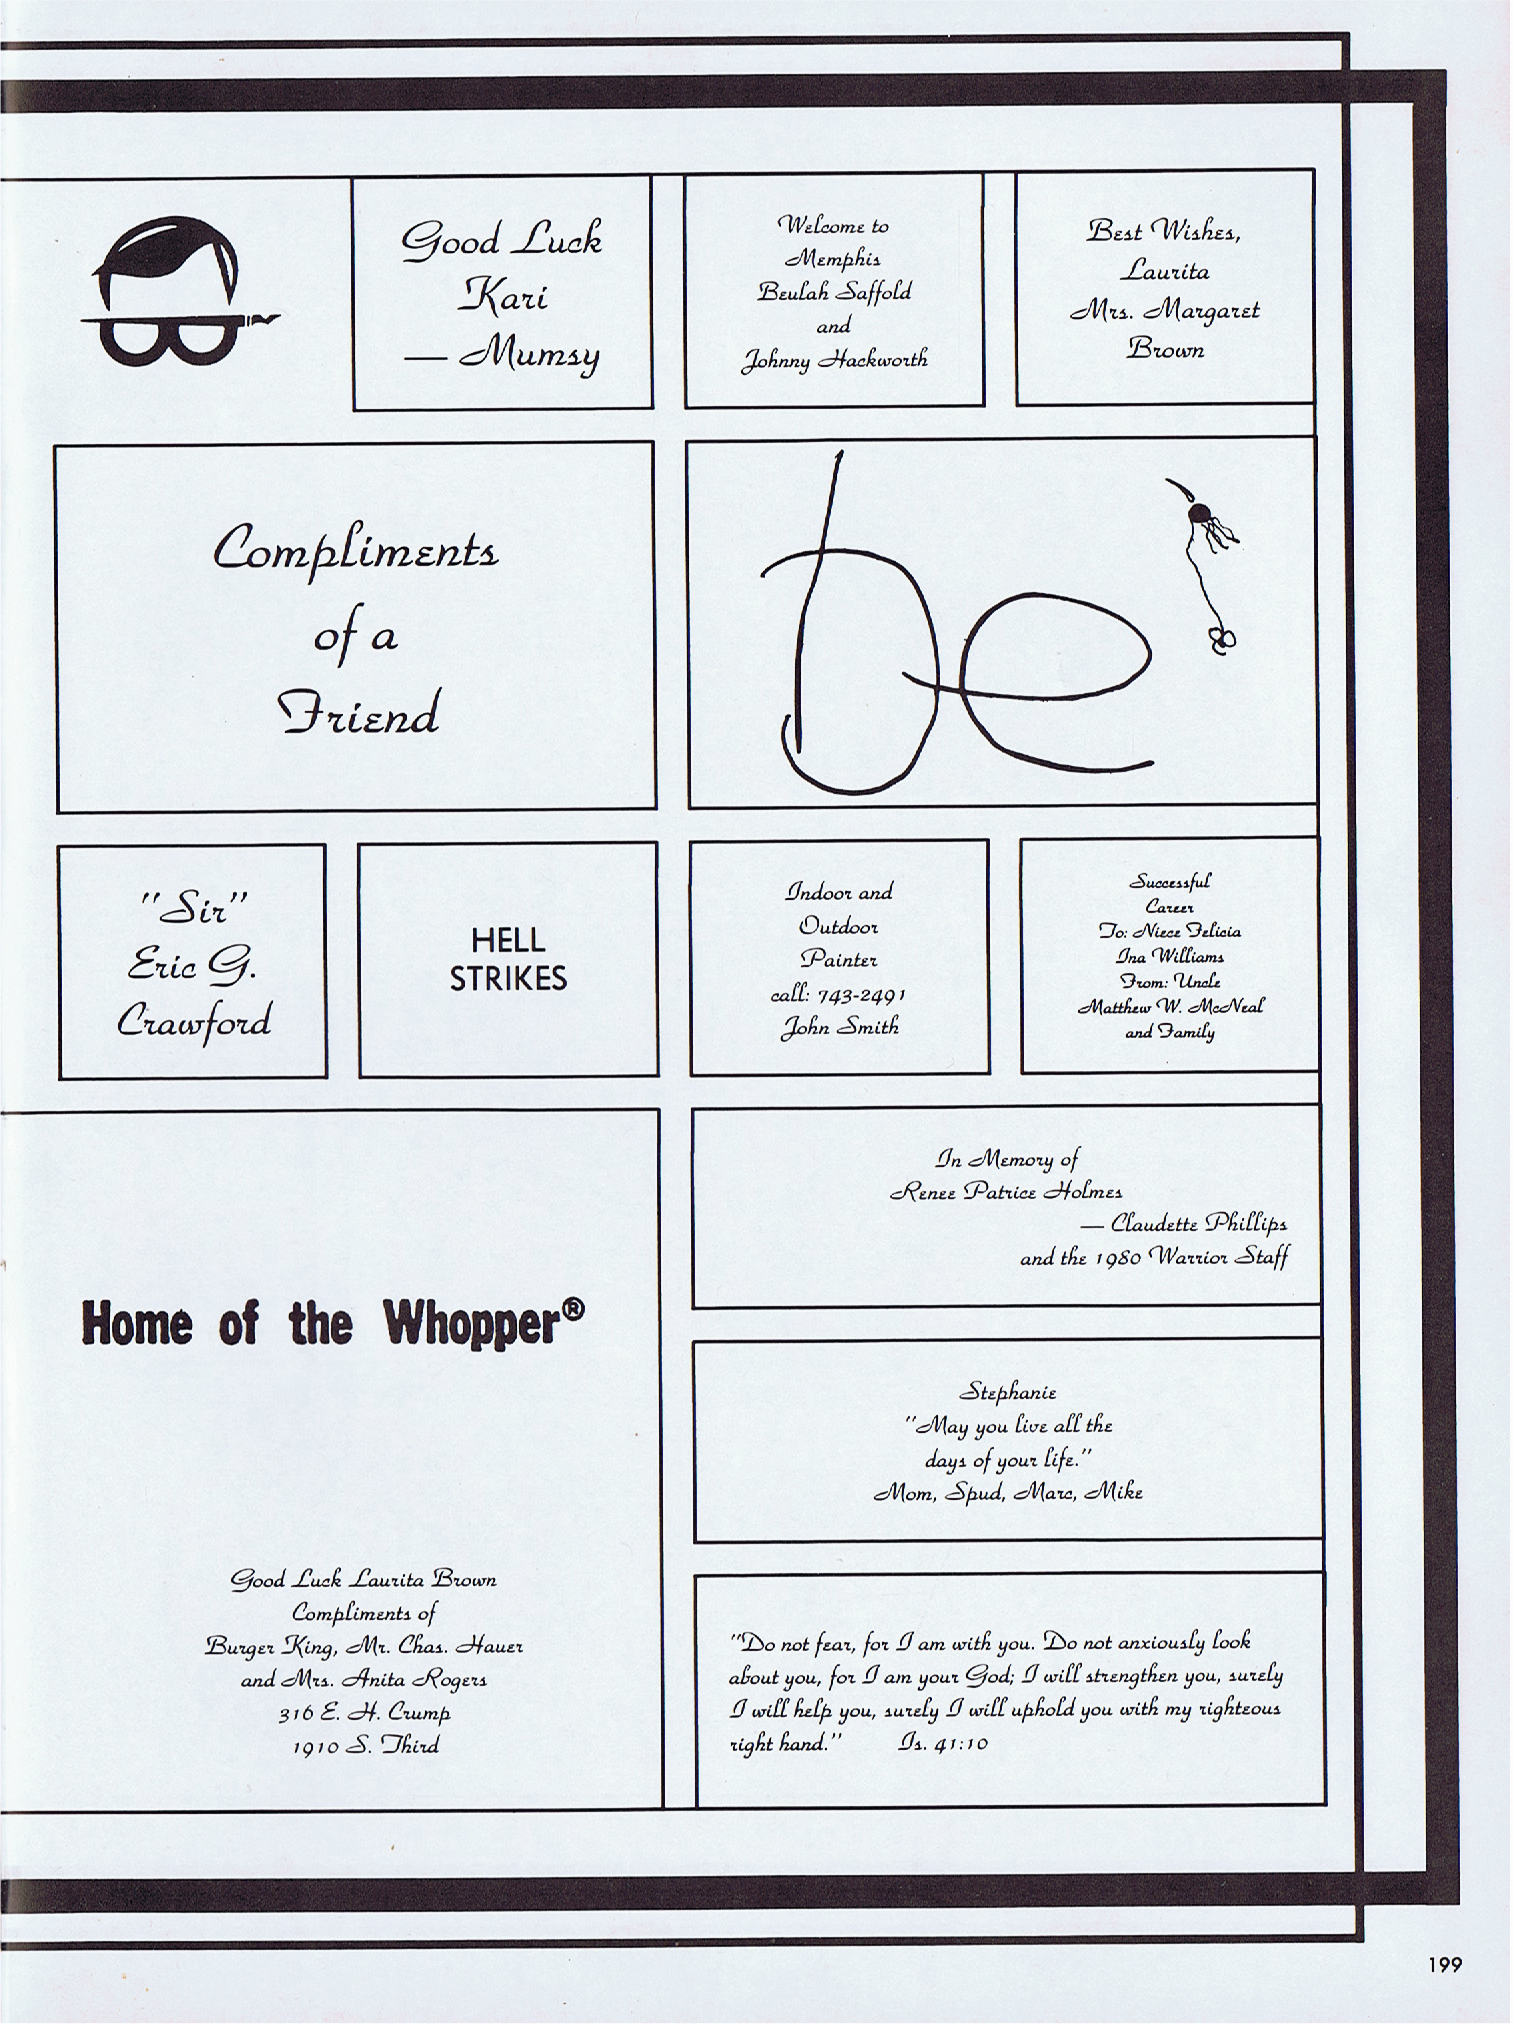 Good Luck
Kari
— Mumsy
Welcome to
Memphis
Beulah Saffold
and
Johnny Hackworth
Best Wishes,
Laurita
Mrs. Margaret
Brown
Compliments
of a
Friend
be
"Sir"
Eric G.
Crawford
HELL
STRIKES
Indoor and
Outdoor
Painter
call: 743-2491
John Smith
Successful
Career
To: Niece Felicia
Ina Williams
From: Uncle
Matthew W. McNeal
and Family
Home of the Whopper®
Good Luck Laurita Brown
Compliments of
Burger King, Mr. Chas. Hauer
and Mrs. Anita Rogers
316 E. H. Crump
1910 S. Third
In Memory of
Renee Patrice Holmes
— Claudette Phillips
and the 1980 Warrior Staff
Stephanie
"May you live all the
days of your life."
Mom, Spud, Marc, Mike
"Do not fear, for I am with you. Do not anxiously look
about you, for I am your God; I will strengthen you, surely
I will help you, surely I will uphold you with my righteous
right hand." Is. 41:10
199